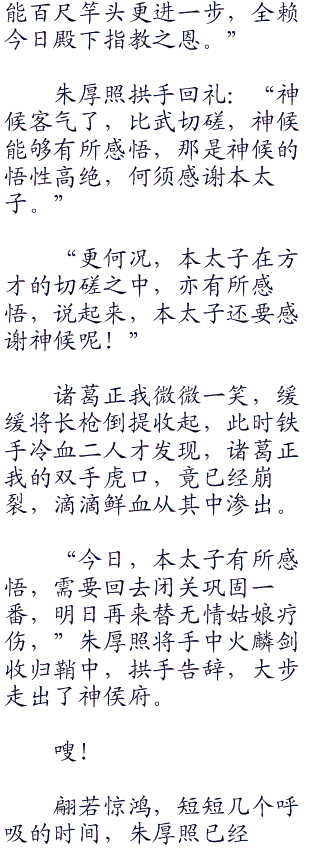 能百尺竿头更进一步，全赖
今日殿下指教之恩。”
朱厚照拱手回礼：“神
候客气了，比武切磋，神候
能够有所感悟，那是神候的
悟性高绝，何须感谢本太
子。”
“更何况，本太子在方
才的切磋之中，亦有所感
悟，说起来，本太子还要感
谢神候呢！”
诸葛正我微微一笑，缓
缓将长枪倒提收起，此时铁
手冷血二人才发现，诸葛正
我的双手虎口，竟已经崩
裂，滴滴鲜血从其中渗出。
“今日，本太子有所感
悟，需要回去闭关巩固一
番，明日再来替无情姑娘疗
伤，”朱厚照将手中火麟剑
收归鞘中，拱手告辞，大步
走出了神侯府。
嗖！
翩若惊鸿，短短几个呼
吸的时间，朱厚照已经